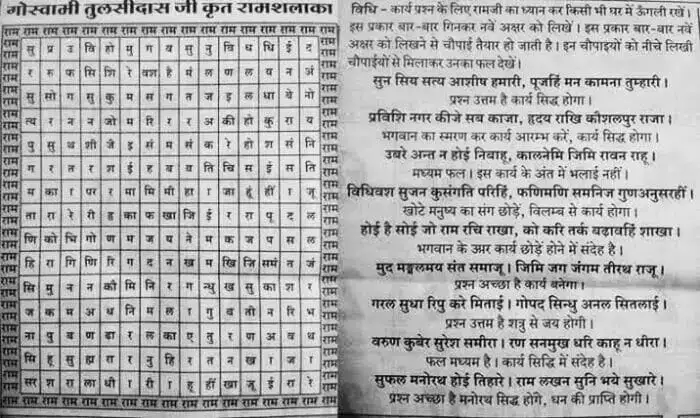 गोस्वामी तुलसीदास जी कृत रामशलाका
राम राम राम राम राम राम राम राम राम राम राम राम राम राम राम राम राम
राम सु प्र उ वि हो मु ग व सु नु वि ध धि ई द राम
राम र रु फ सि शि रे वश है मं ल ण ल य न अं राम
राम सु सो ग सु कु म स ग त ज इ ल धा बे नो राम
राम त्य र न न जो म रि र र अ की हो कु रा य राम
राम पु सु थ शी जे इ सं म सं क रे हो श सं नि राम
राम ग र त र श ई ह व व ति चि स ई स ति राम
राम म का ा पर र मा मि मी हा ा जा हूं हीं ा जू राम
राम ता रा रे री ह का फ खा जि ई र रा पू द ल राम
राम णि को भि गो ण म ज य ने म क ज प स ल राम
राम हि रा गि णि रि ग द न ख म खि जि समं त जं राम
राम सि मु न न को मि नि र ग न्धु ख सु का श र राम
राम ज क म अ ध नि म ल ा गु ब तो न रि भ राम
राम ना पु व ण ढा र ल का ए तु र ण अ व थ राम
राम सि हू सु ह्म रा र नु हि र त न खा ज ा राम
राम सर श रा ला धी ा री ा हू हीं खा जू ई रा रे राम
राम राम राम राम राम राम राम राम राम राम राम राम राम राम राम राम राम
विधि - कार्य प्रश्न के लिए रामजी का ध्यान कर किसी भी घर में ऊँगली रखें।
इस प्रकार बार-बार गिनकर नवें अक्षर को लिखें। इस प्रकार बार-बार नवें
अक्षर को लिखने से चौपाई तैयार हो जाती है। इन चौपाइयों को नीचे लिखी
चौपाईयों से मिलाकर उनका फल देखें।
सुन सिय सत्य आशीष हमारी, पूजहिं मन कामना तुम्हारी।
प्रश्न उत्तम है कार्य सिद्ध होगा।
प्रविशि नगर कीजे सब काजा, हृदय राखि कौशलपुर राजा।
भगवान का स्मरण कर कार्य आरम्भ करें, कार्य सिद्ध होगा।
उबरे अन्त न होई निबाहू, कालनेमि जिमि रावन राहू।
मध्यम फल। इस कार्य के अंत में भलाई नहीं।
विधिवश सुजन कुसंगति परिहिं, फणिमणि समनिज गुणअनुसरहीं।
खोटे मनुष्य का संग छोड़ें, विलम्ब से कार्य होगा।
होई है सोई जो राम रचि राखा, को करि तर्क बढ़ावहिं शाखा।
भगवान के ऊपर कार्य छोड़ें होने में संदेह है।
मुद मङ्गलमय संत समाजू। जिमि जग जंगम तीरथ राजू।
प्रश्न अच्छा है कार्य बनेगा।
गरल सुधा रिपु करे मिताई। गोपद सिन्धु अनल सितलाई।
प्रश्न उत्तम है शत्रु से जय होगी।
वरुण कुबेर सुरेश समीरा। रण सनमुख धरि काहू न धीरा।
फल मध्यम है। कार्य सिद्धि में संदेह है।
सुफल मनोरथ होई तिहारे। राम लखन सुनि भये सुखारे।
प्रश्न अच्छा है मनोरथ सिद्ध होगे, धन की प्राप्ति होगी।